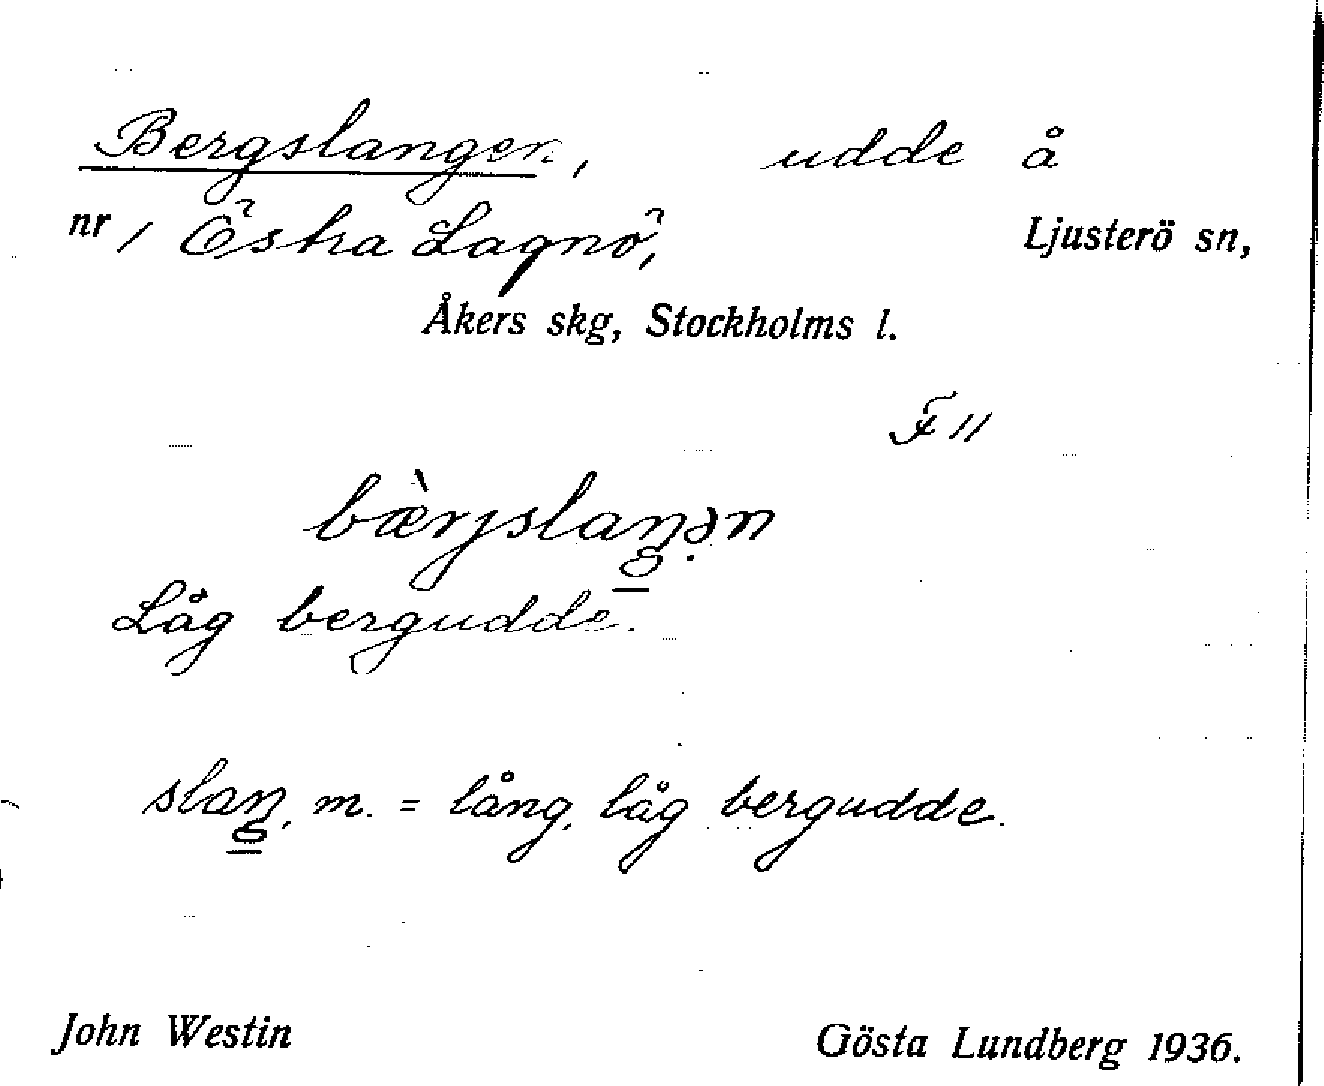 Bergslangen, udde å
nr 1 Östra Lagnö, Ljusterö sn,
Åkers skg, Stockholms l.
F 11
bæ̀rjslaŋ̲ən
Låg bergudde.
slaŋ̲, m. = lång, låg bergudde.
John Westin Gösta Lundberg 1936.